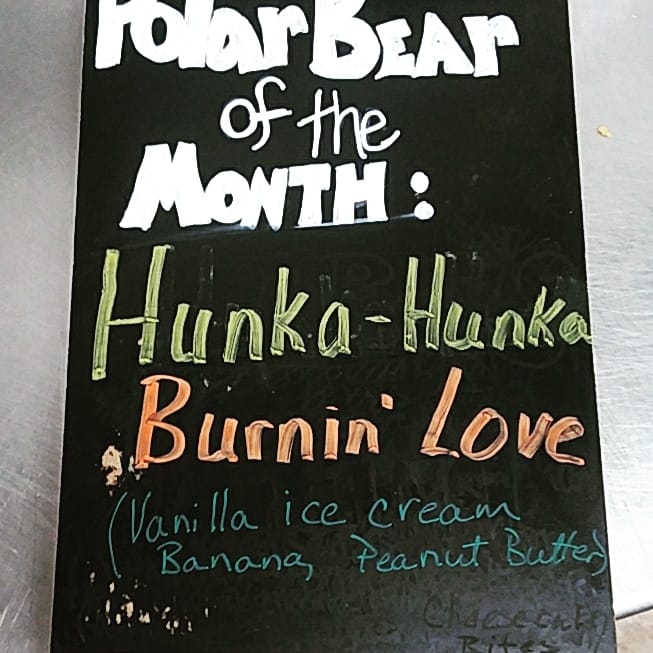 Polar Bear
of the
Month:
Hunka-Hunka
Burnin' Love
(Vanilla ice cream
Banana, Peanut Butter)
Cheesecake
Bites